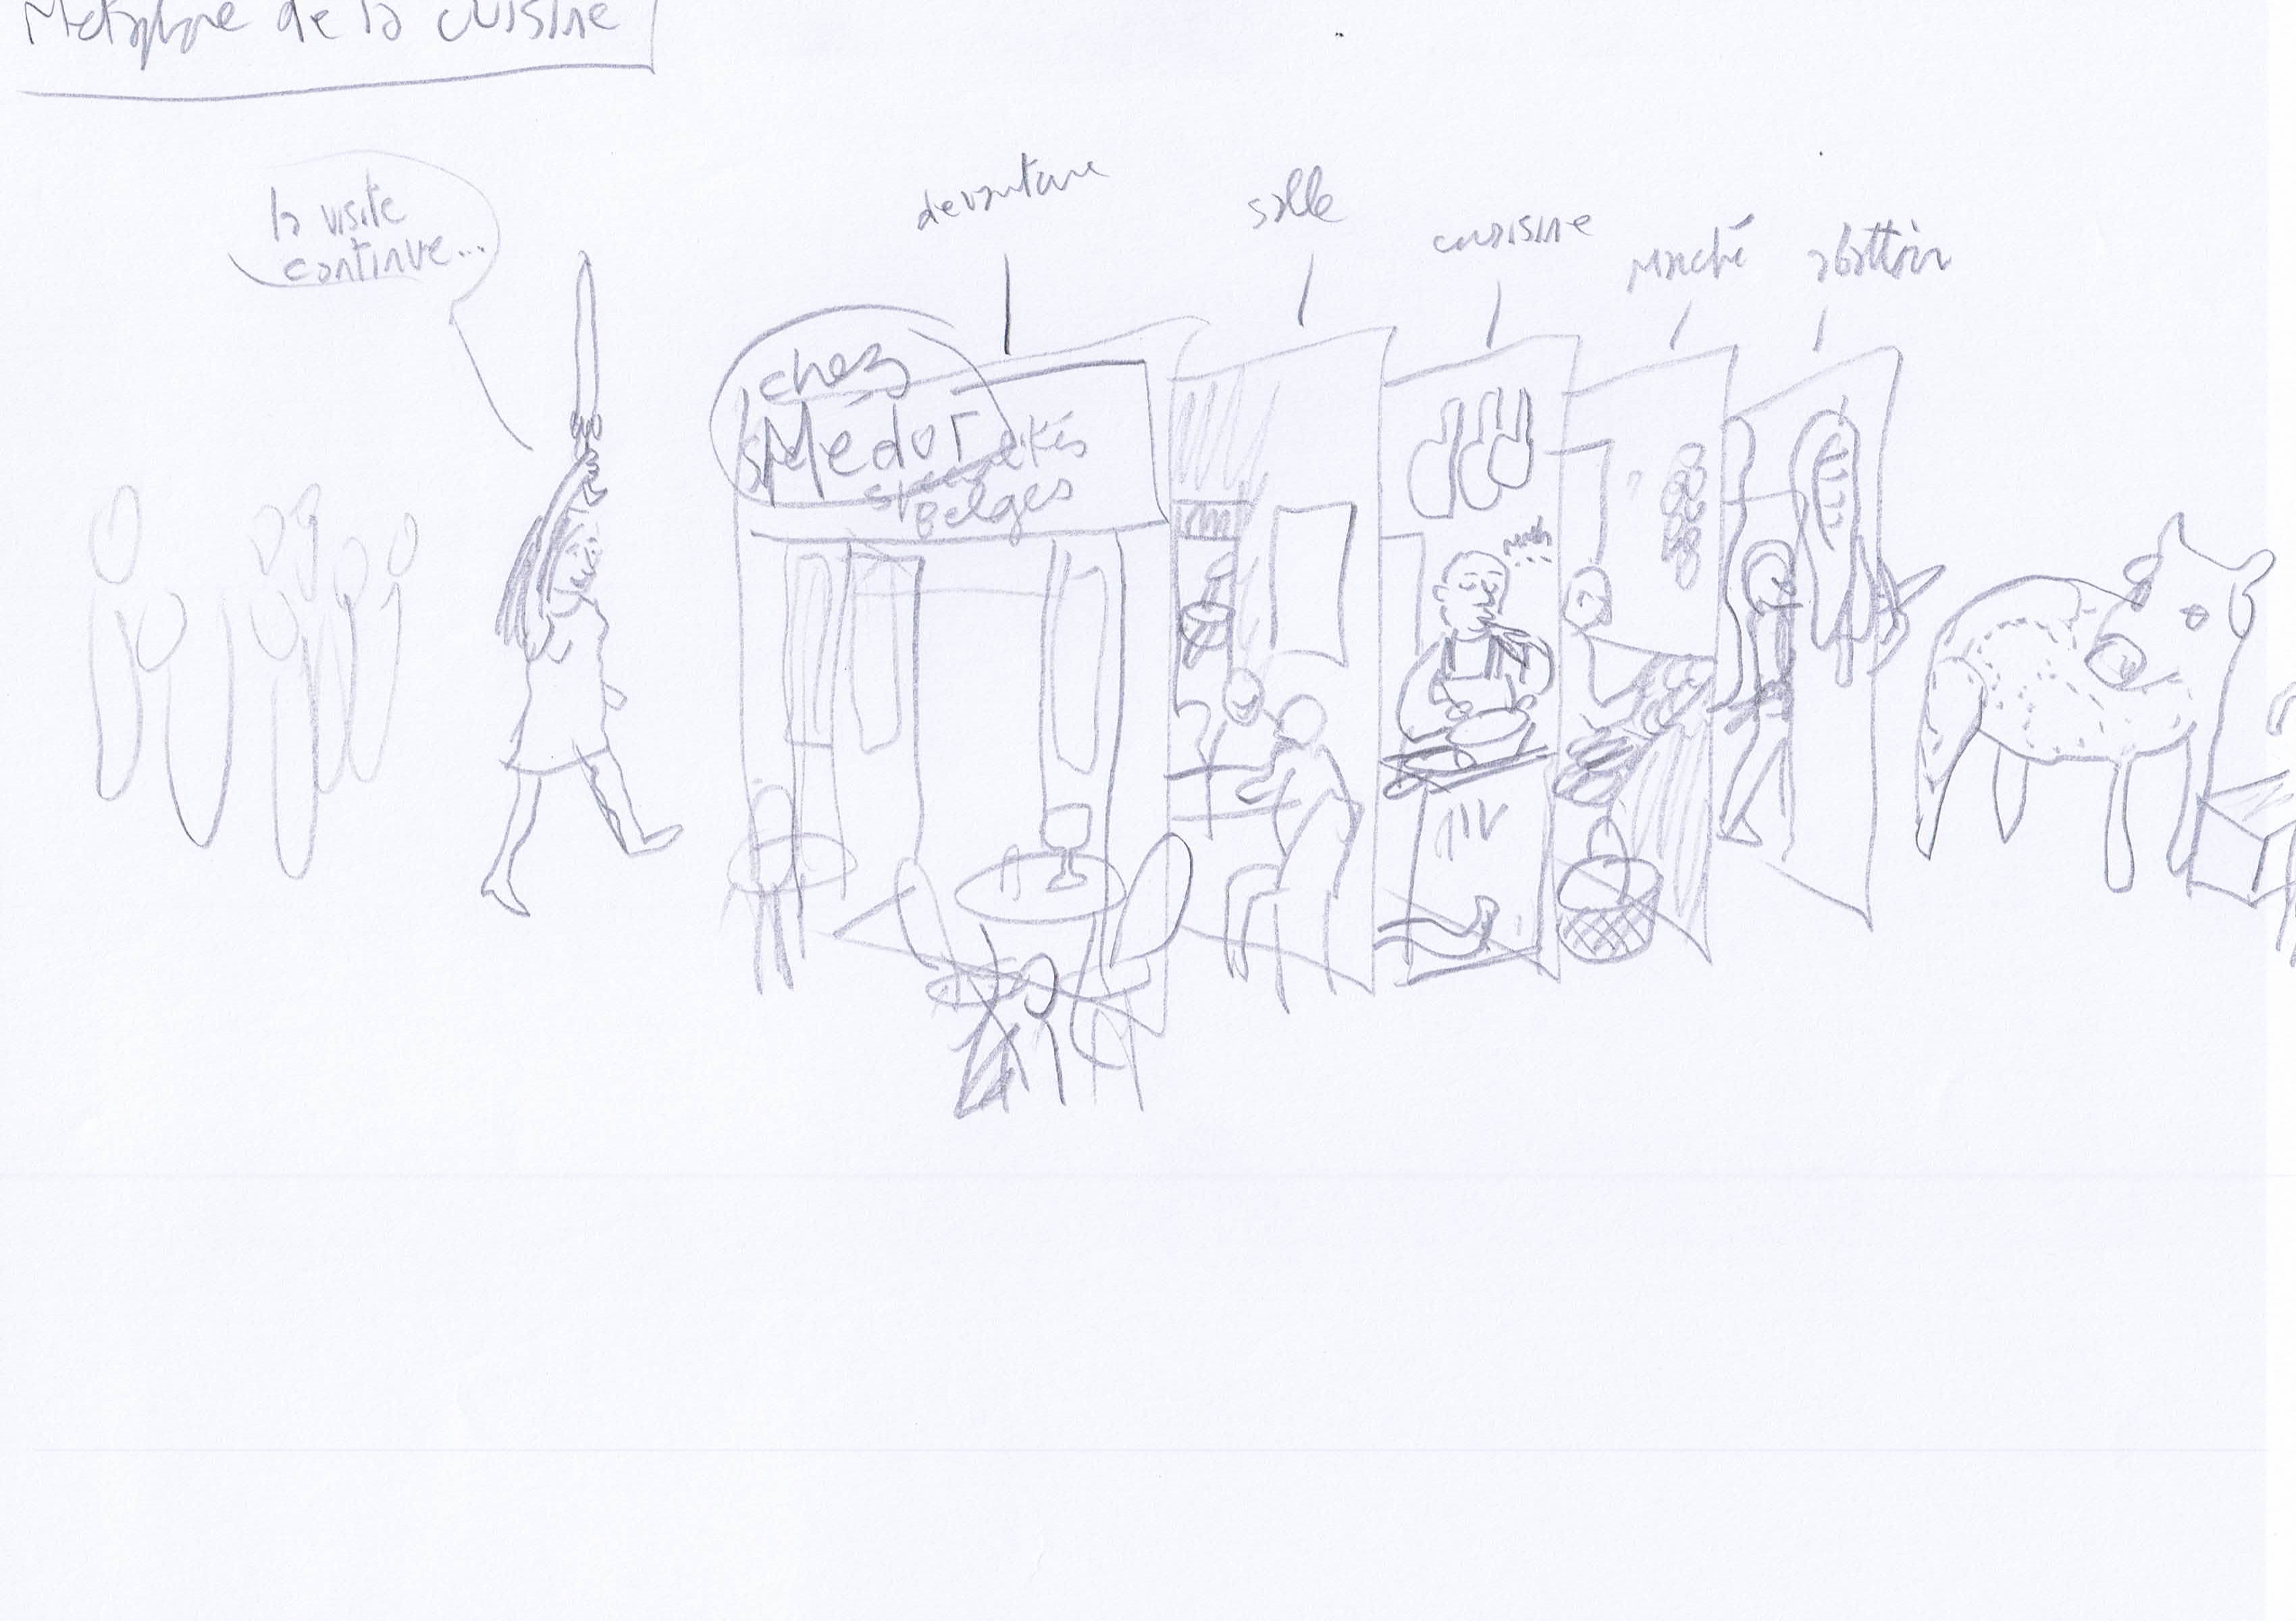 Métaphore de la cuisine
la visite
continue...
devanture
salle
cuisine
marché
abattoir
chez
Médor
spécialités
Belges